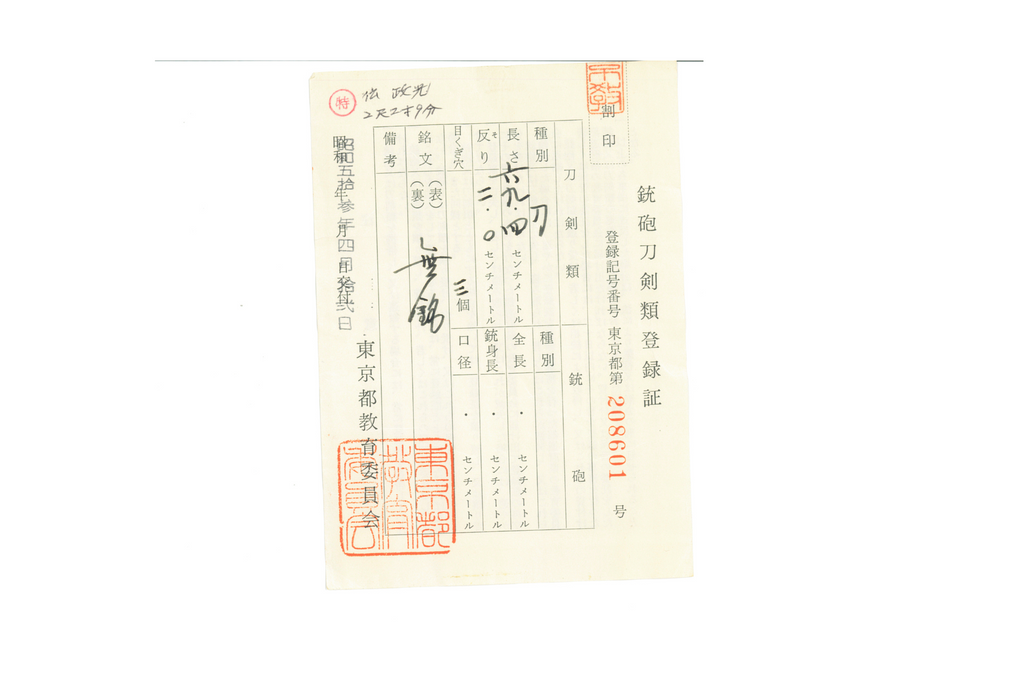 銃砲刀剣類登録証
登録記号番号 東京都第 208601 号
割印
刀剣類
種別 刀
長さ 六九.四 センチメートル
反り 二.〇 センチメートル
そ
目くぎ穴 三 個
銘文 (表) (裏) 無銘
備考
銃砲
種別
全長 ・ センチメートル
銃身長 ・ センチメートル
口径 ・ センチメートル
昭和 年 月 日交付
昭和五拾参年四月拾弐日
東京都教育委員会
東京都教育委員会
特
伝 政光
2尺2寸9分